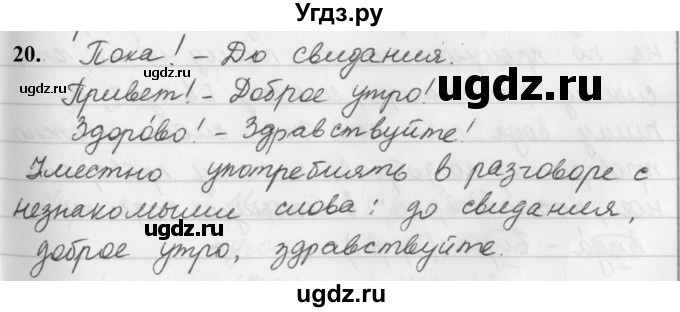 Угдз.ру
20. Пока! – До свидания.
Привет! – Доброе утро!
Здоро́во! – Здравствуйте!
Уместно употреблять в разговоре с
незнакомыми слова: до свидания,
доброе утро, здравствуйте.
ugdz.ru
ugdz.ru
ugdz.ru
ugdz.ru
ugdz.ru
ugdz.ru
ugdz.ru